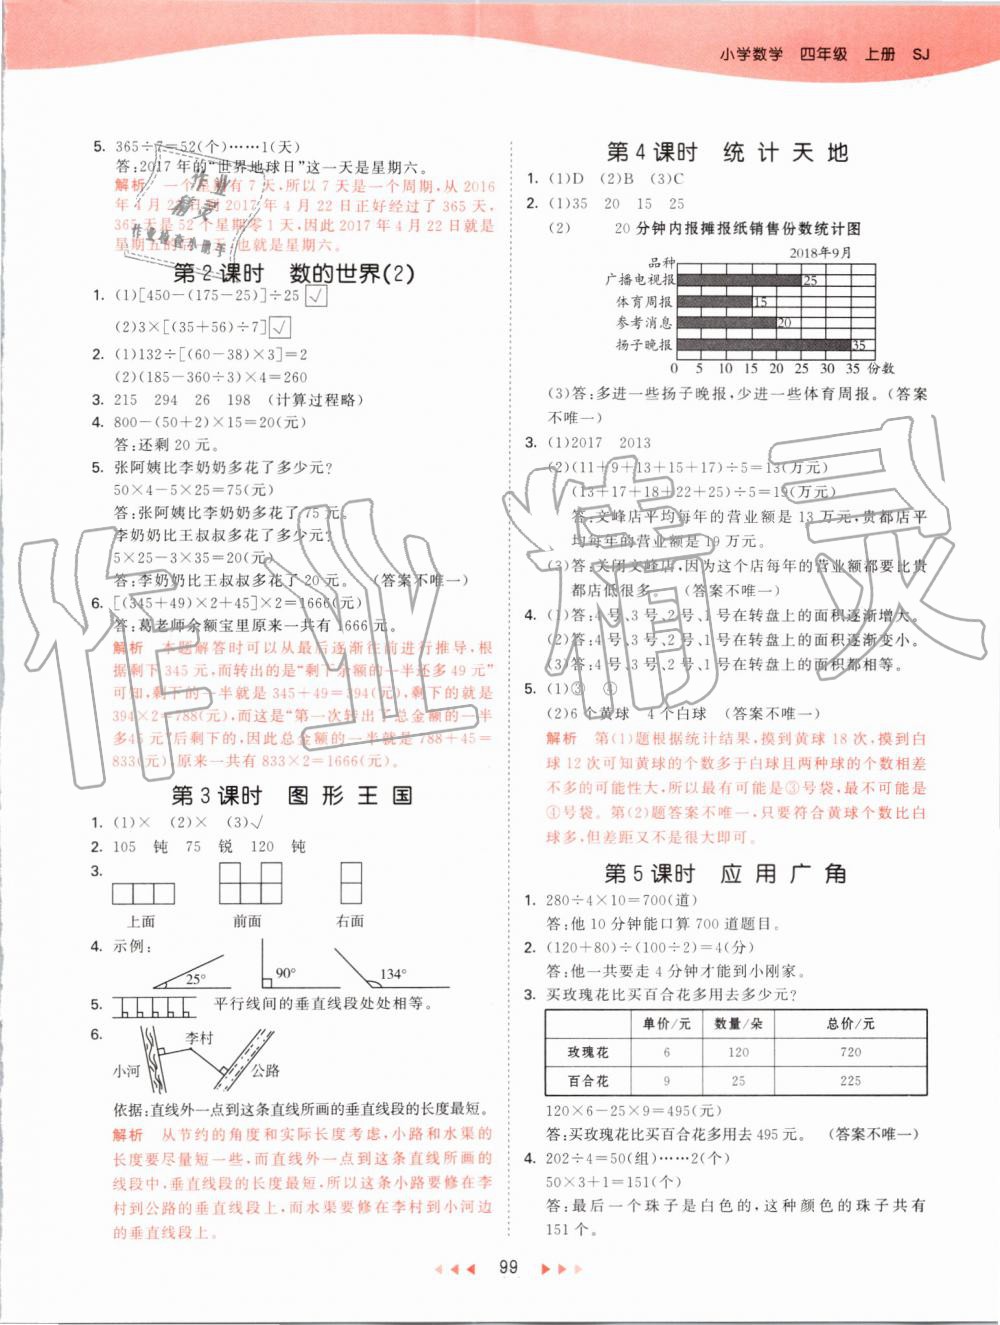 小学数学 四年级 上册 SJ
5. 365÷7=52(个)……1(天)
答:2017年的“世界地球日”这一天是星期六。
解析 一个星期有7天,所以7天是一个周期,从2016
年4月22日到2017年4月22日正好经过了365天,
365天是52个星期零1天,因此2017年4月22日就是
星期五的后一天,也就是星期六。
第2课时 数的世界(2)
1. (1)[450-(175-25)]÷25 √
(2)3×[(35+56)÷7] √
2. (1)132÷[(60-38)×3]=2
(2)(185-360÷3)×4=260
3. 215 294 26 198 (计算过程略)
4. 800-(50+2)×15=20(元)
答:还剩20元。
5. 张阿姨比李奶奶多花了多少元?
50×4-5×25=75(元)
答:张阿姨比李奶奶多花了75元。
李奶奶比王叔叔多花了多少元?
5×25-3×35=20(元)
答:李奶奶比王叔叔多花了20元。 (答案不唯一)
6. [(345+49)×2+45]×2=1666(元)
答:葛老师余额宝里原来一共有1666元。
解析 本题解答时可以从最后逐渐往前进行推导,根
据剩下345元,而转出的是“剩下余额的一半还多49元”
可知,剩下的一半就是345+49=394(元),剩下的就是
394×2=788(元),而这是“第一次转出了总金额的一半
多45元”后剩下的,因此总金额的一半就是788+45=
833(元),原来一共有833×2=1666(元)。
第3课时 图形王国
1. (1)× (2)× (3)√
2. 105 钝 75 锐 120 钝
3.
上面 前面 右面
4. 示例:
25° 90° 134°
5. 平行线间的垂直线段处处相等。
6.
李村
小河 公路
依据:直线外一点到这条直线所画的垂直线段的长度最短。
解析 从节约的角度和实际长度考虑,小路和水渠的
长度要尽量短一些,而直线外一点到这条直线所画的
线段中,垂直线段的长度最短,所以这条小路要修在李
村到公路的垂直线段上,而水渠要修在李村到小河边
的垂直线段上。
第4课时 统计天地
1. (1)D (2)B (3)C
2. (1)35 20 15 25
(2) 20分钟内报摊报纸销售份数统计图
2018年9月
品种
广播电视报 25
体育周报 15
参考消息 20
扬子晚报 35
0 5 10 15 20 25 30 35 份数
(3)答:多进一些扬子晚报,少进一些体育周报。(答案
不唯一)
3. (1)2017 2013
(2)(11+9+13+15+17)÷5=13(万元)
(13+17+18+22+25)÷5=19(万元)
答:文峰店平均每年的营业额是13万元,贵都店平
均每年的营业额是19万元。
(3)答:关闭文峰店,因为这个店每年的营业额都要比贵
都店低很多。 (答案不唯一)
4. (1)答:4号、3号、2号、1号在转盘上的面积逐渐增大。
(2)答:4号、3号、2号、1号在转盘上的面积逐渐变小。
(3)答:4号、3号、2号、1号在转盘上的面积都相等。
5. (1)③ ④
(2)6个黄球 4个白球 (答案不唯一)
解析 第(1)题根据统计结果,摸到黄球18次,摸到白
球12次可知黄球的个数多于白球且两种球的个数相差
不多的可能性大,所以最有可能是③号袋,最不可能是
④号袋。第(2)题答案不唯一,只要符合黄球个数比白
球多,但差距又不是很大即可。
第5课时 应用广角
1. 280÷4×10=700(道)
答:他10分钟能口算700道题目。
2. (120+80)÷(100÷2)=4(分)
答:他一共要走4分钟才能到小刚家。
3. 买玫瑰花比买百合花多用去多少元?
单价/元 数量/朵 总价/元
玫瑰花 6 120 720
百合花 9 25 225
120×6-25×9=495(元)
答:买玫瑰花比买百合花多用去495元。 (答案不唯一)
4. 202÷4=50(组)……2(个)
50×3+1=151(个)
答:最后一个珠子是白色的,这种颜色的珠子共有
151个。
99
作业精灵
作业检查小助手
作业精灵